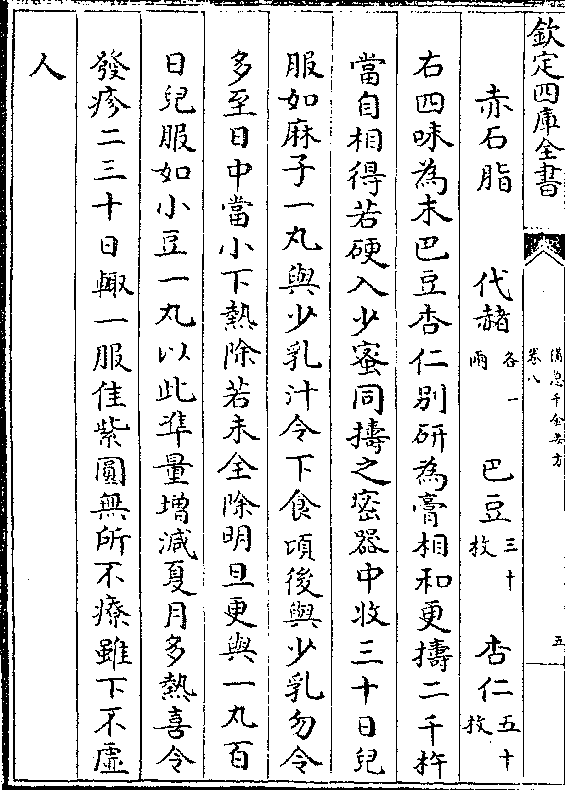 欽定四庫全書
備急千金要方
卷八
五
赤石脂 代赭各一兩 巴豆三十枚 杏仁五十枚
右四味為末巴豆杏仁别研為膏相和更擣二千杵
當自相得若硬入少蜜同擣之密器中收三十日兒
服如麻子一丸與少乳汁令下食頃後與少乳勿令
多至日中當小下熱除若未全除明旦更與一丸百
日兒服如小豆一丸以此準量増減夏月多熱喜令
發疹二三十日輙一服佳紫圓無所不療雖下不虛
人